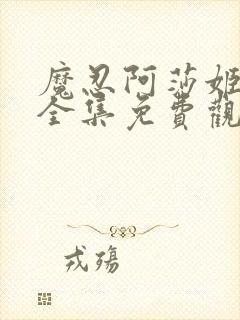 魔忍阿莎姬
全集免費觀
戎殤